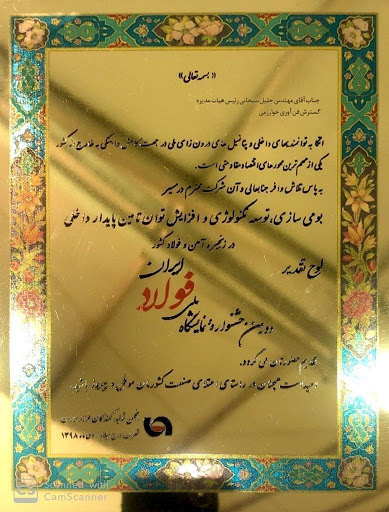 « بسمه تعالی »
جناب آقای مهندس جلیل سبحانی رئیس هیات مدیره
گسترش فن آوری خوارزمی
اتکا به توانمندی‌های داخلی و پتانسیل های درون زای ملی در جهت کاهش وابستگی به خارج از کشور
یکی از مهم ترین محورهای اقتصاد مقاومتی است.
به پاس تلاش وافر جنابعالی و آن شرکت محترم در مسیر
بومی سازی، توسعه تکنولوژی و افزایش توان تامین پایدار داخلی
در زنجیره آهن و فولاد کشور
لوح تقدیر
دومین جشنواره و نمایشگاه
ملی
فولاد
ایران
تقدیم حضورتان می گردد.
امیدست همچنان در راستای اعتلای صنعت کشورمان موفق و پیروز باشید.
انجمن تولید کنندگان فولاد ایران
تهران - دی ماه ۱۳۹۸
CS Scanned with
CamScanner